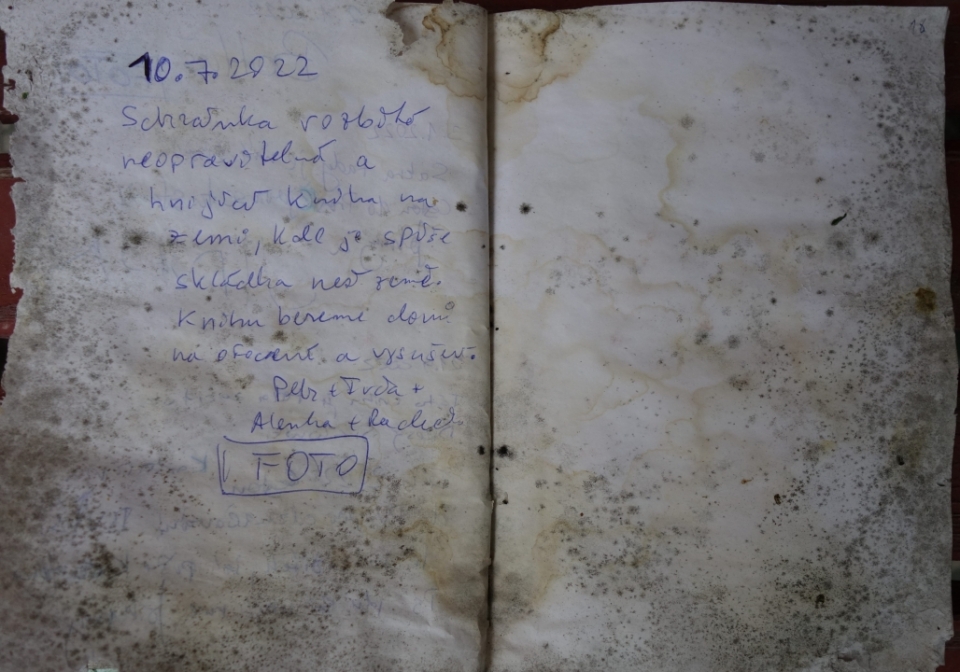 10.7.2022
Schránka rozbitá
neopravitelná a
hnijící kniha na
zemi, kde je spíše
skládka než země.
Knihu bereme domů
na ofocení a vysušení.
Petr + Ivča +
Alenka +
FOTO
18